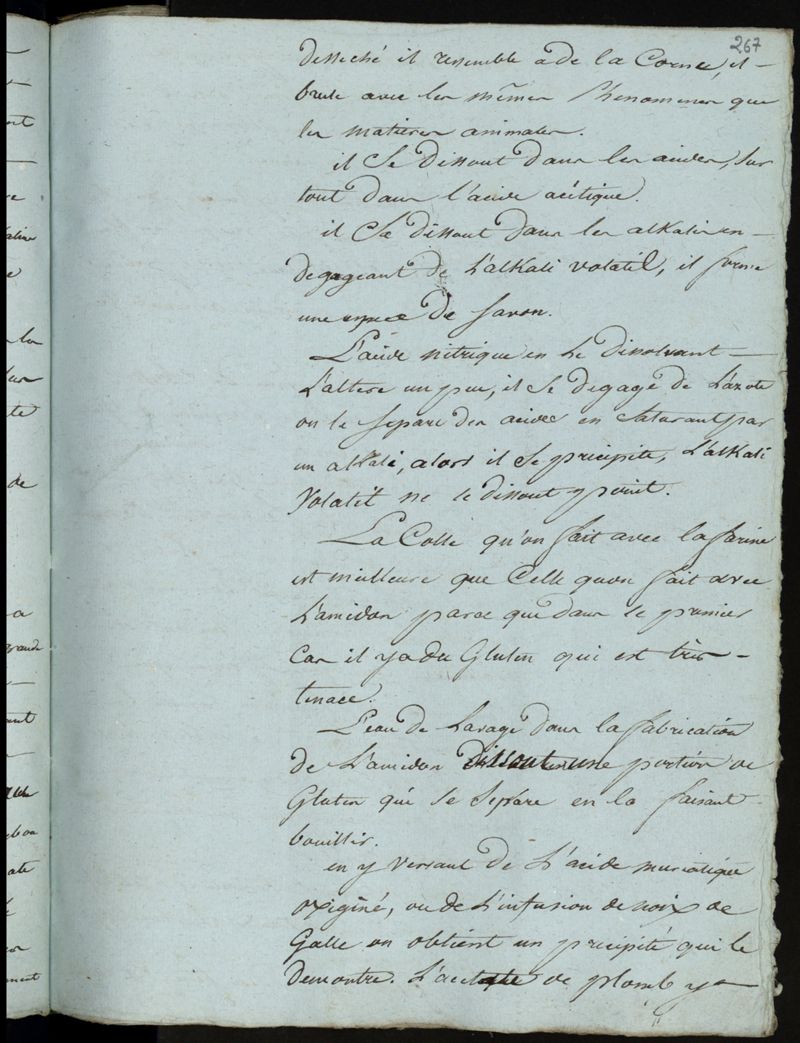 267
desseché il ressemble a de la Corne, il
brule avec les mêmes Phenomenes que
les matieres animales.
il Se dissout dans les acides, sur
tout dans l'acide acétique.
il Se dissout dans les alkalis en
degageant de L'alkali volatil, il forme
une espece de savon.
L'acide nitrique en le dissolvant
L'altere un peu, il se degage de L'azote
on le separe des acides en saturant par
un alkali, alors il se precipite, L'alkali
Volatil ne le dissout point.
La Colle qu'on fait avec la farine
est meilleure que Celle qu'on fait avec
L'amidon parce que dans le premier
Cas il y a du Gluten qui est très
tenace.
L'eau de Lavage dans la fabrication
de L'amidon dissout une portion de
Gluten qui se separe en la faisant
bouillir.
en y versant de L'acide muriatique
oxigéné, ou de L'infusion de noix de
Galle on obtient un precipité qui le
Demontre. L'acetate de plomb y